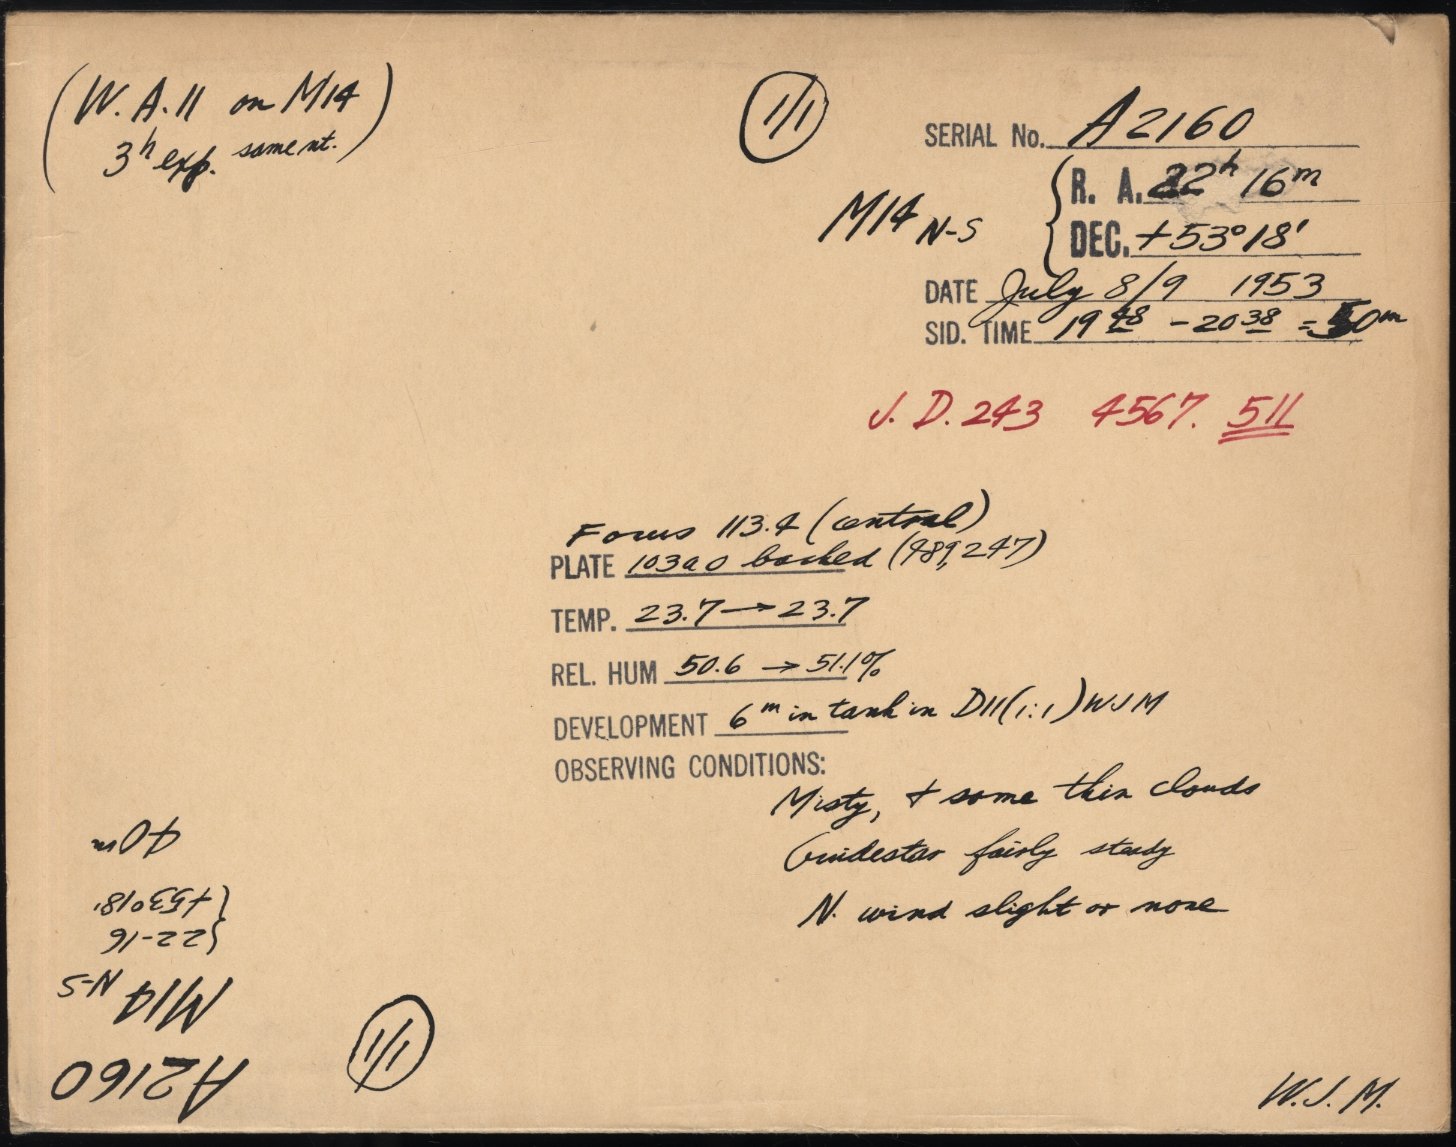 (W. A. 11 on M14)
3h exp. same nt.
1/1
SERIAL No. A2160
R. A. 22h 16m
M14 N-S
DEC. +53°18'
DATE July 8/9 1953
SID. TIME 19 48 - 20 38 = 50m
J. D. 243 4567. 511
Focus 113.4 (central)
PLATE 103aO backed (489,247)
TEMP. 23.7 → 23.7
REL. HUM 50.6 → 51.1%
DEVELOPMENT 6m in tank in D11(1:1) WJM
OBSERVING CONDITIONS:
Misty, + some thin clouds
Guidestar fairly steady
N. wind slight or none
A2160
M14 N-S
{22-16
{+53°18'
40m
1/1
W. J. M.